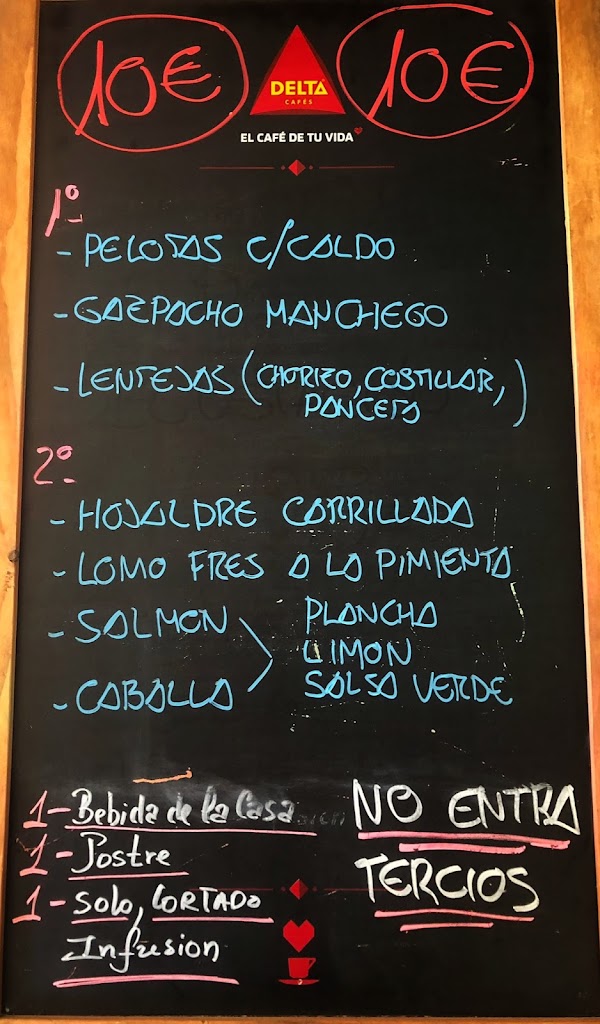 10€ 10€
DELTA
CAFÉS
EL CAFÉ DE TU VIDA
1º
- PELOTAS C/CALDO
- GAZPACHO MANCHEGO
- LENTEJAS (CHORIZO, COSTILLAR,
PANCETA)
2º
- HOJALDRE CARRILLADA
- LOMO FRES A LA PIMIENTA
- SALMON PLANCHA
LIMON
- CABALLA SALSA VERDE
1- Bebida de la Casa
1- Postre
1- Solo, CORTADO
Infusion
NO ENTRA
TERCIOS